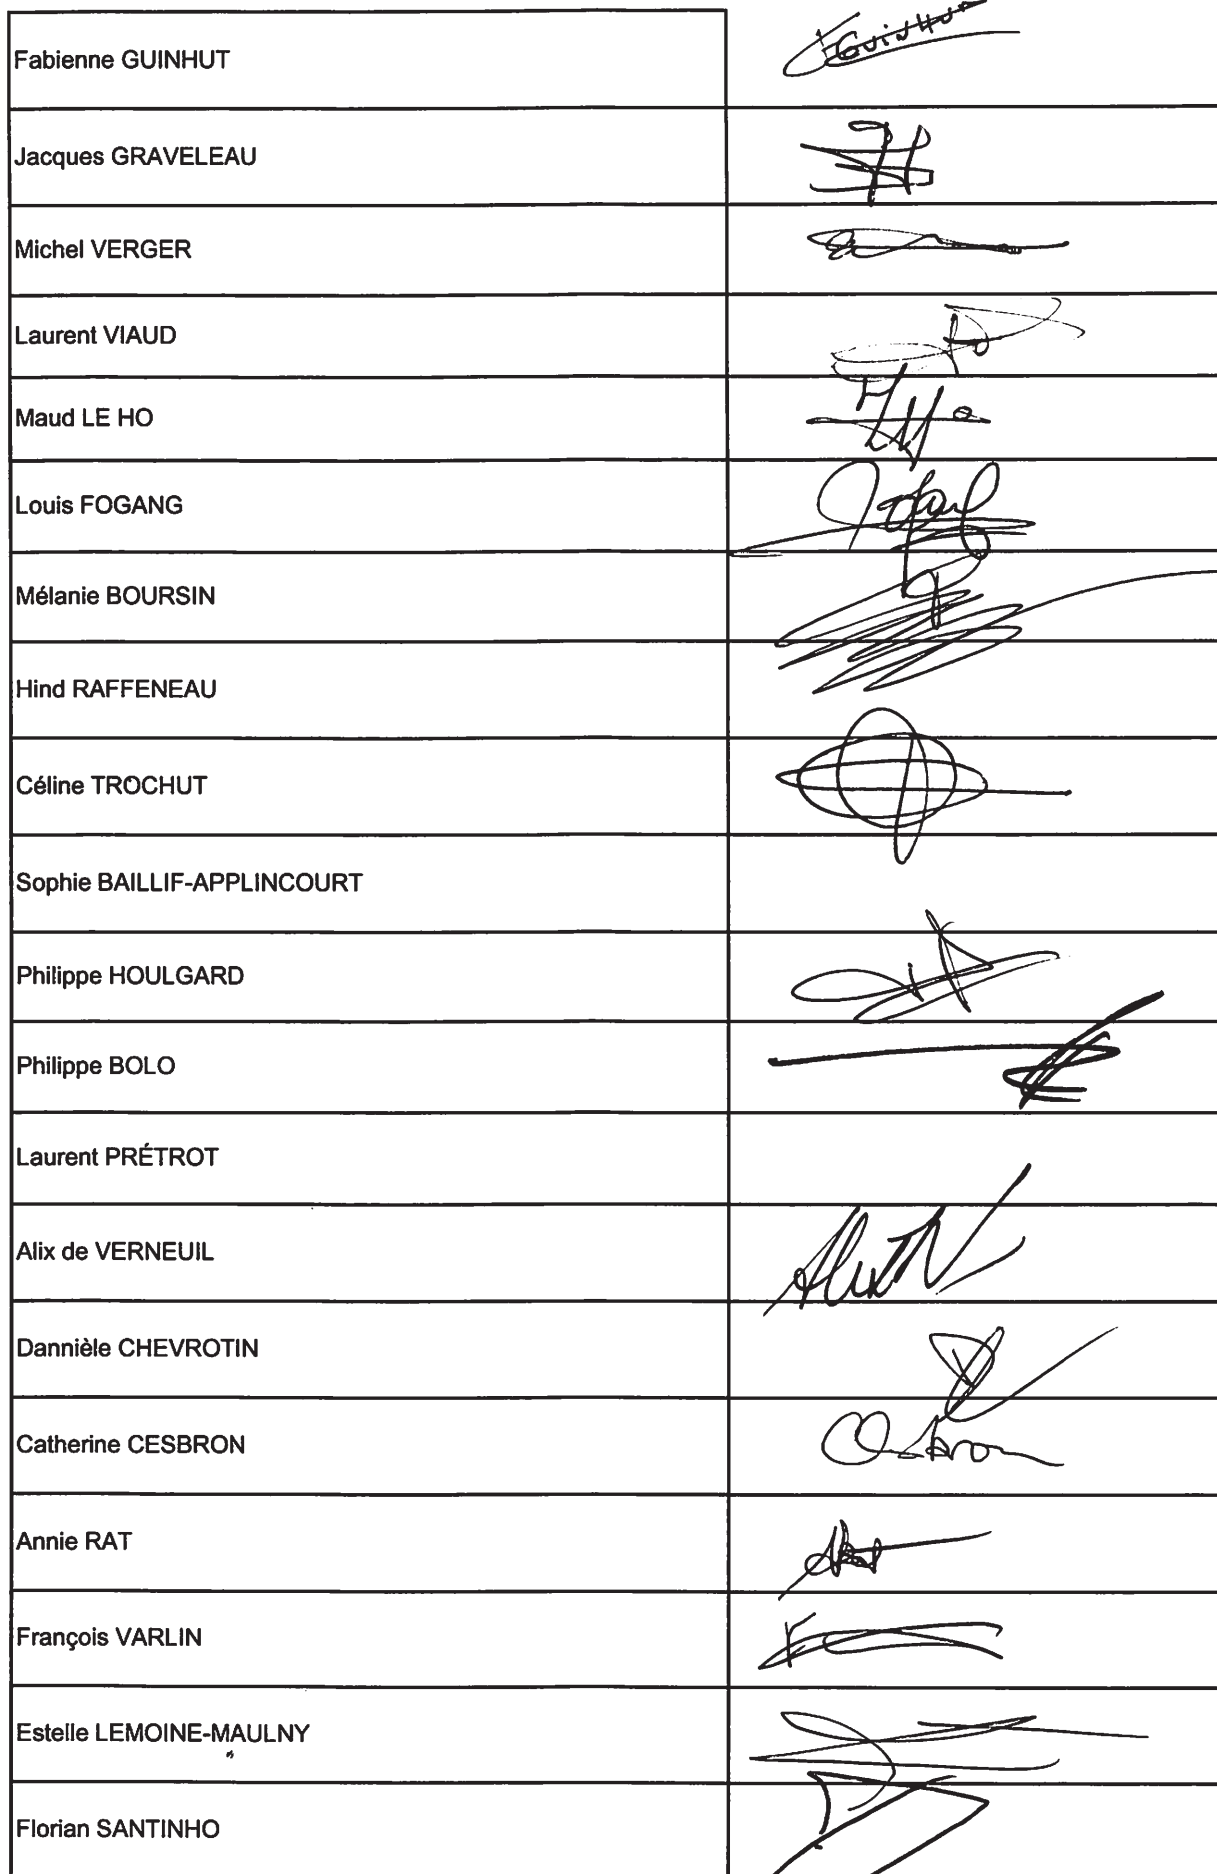 Fabienne GUINHUT
Jacques GRAVELEAU
Michel VERGER
Laurent VIAUD
Maud LE HO
Louis FOGANG
Mélanie BOURSIN
Hind RAFFENEAU
Céline TROCHUT
Sophie BAILLIF-APPLINCOURT
Philippe HOULGARD
Philippe BOLO
Laurent PRÉTROT
Alix de VERNEUIL
Dannièle CHEVROTIN
Catherine CESBRON
Annie RAT
François VARLIN
Estelle LEMOINE-MAULNY
Florian SANTINHO